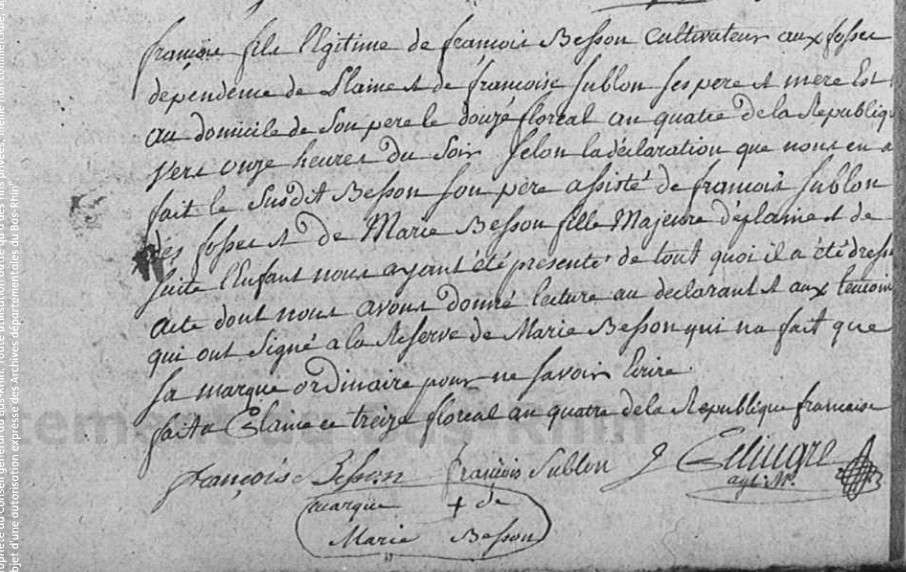 françoise fille légitime de françois Besson Cultivateur aux fosses
dependence de Plaine et de françoise Sublon ses pere et mere Est
au domicile de Son pere le douze floreal an quatre de la Republiq
Vers onze heures du Soir Selon la déclaration que nous en a
fait le Susdit Besson Son père assisté de françois Sublon
des fosses et de Marie Besson fille Majeure de plaine et de
Suite l'Enfant nous ayant été présenté de tout quoi il a été dressé
acte dont nous avons donné lecture au declarant et aux temoins
qui ont Signé a la Reserve de Marie Besson qui na fait que
Sa marque ordinaire pour ne Savoir Ecrire.
fait a Plaine ce treize floreal an quatre de la Republique francaise
françois Besson françois Sublon
agt. M.
marque + de
Marie Besson
propriété du Conseil général du Bas-Rhin. Toute
objet d'une autorisation expresse des Archives départementales du Bas-Rhin".